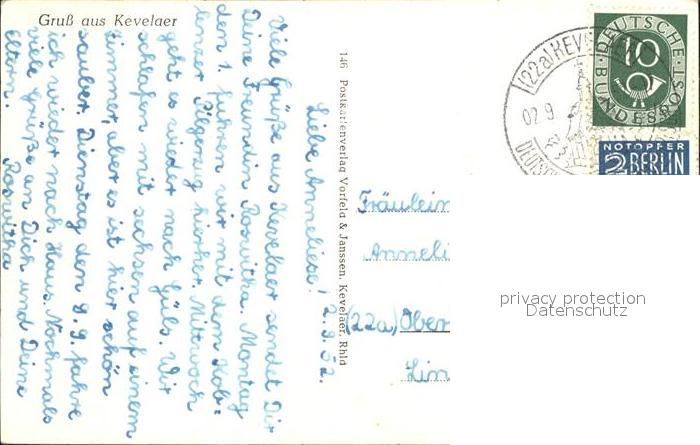 Gruß aus Kevelaer
Liebe Anneliese! 2.9.52.
Viele Grüße aus Kevelaer sendet Dir
Deine Freundin Roswitha. Montag
den 1. fuhren wir mit dem Kob=
lenzer Pilgerzug hierher. Mittwoch
geht es wieder nach Güls. Wir
schlafen mit sechsen auf einem
Zimmer, aber es ist hier schön
sauber. Dienstag den 8.9 fahre
ich wieder nach Haus. Nochmals
viele Grüße an Dich und Deine
Eltern. Roswitha
146 Postkartenverlag Vorfeld & Janssen, Kevelaer, Rhld
Fräulein
Anneli
(22a) Ober
Lin
(22a) KEVE
02 9
DEUTSC
DEUTSCHE
BUNDESPOST
10
NOTOPFER
2 BERLIN
privacy protection
Datenschutz